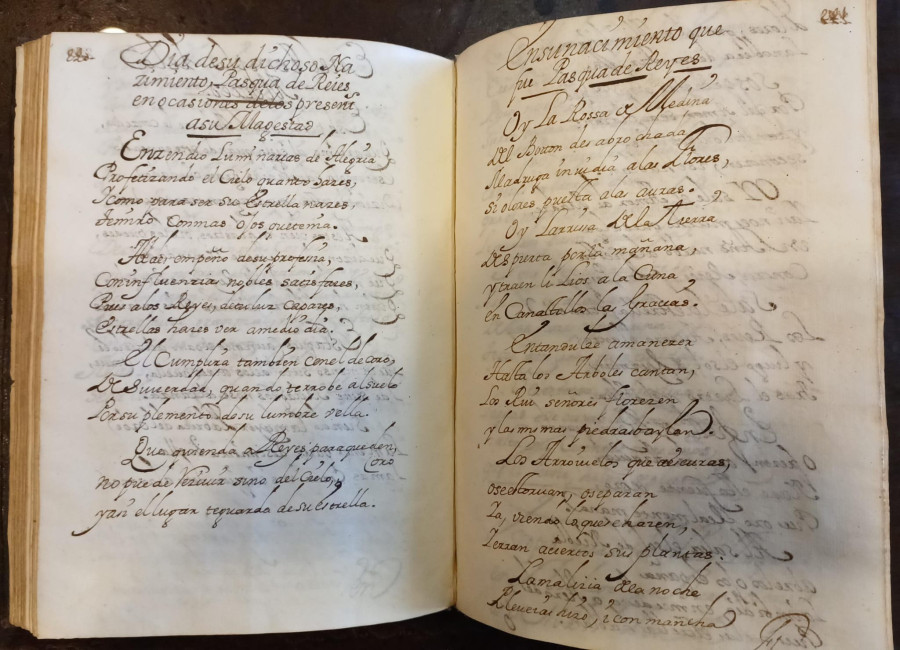 Dia desu dichoso Na
zimiento, Pasqua de Reies
en ocasiones delos present
asu Magestad
Enzendio Luminarias de Alegria
Profetizando el Cielo quanto hazes,
Y como para ser su Estrella nazes,
temiro conmas ojos que
Al empeño desu profesia,
Coninfluenzias nobles satisfazes,
Pues alos Reyes, de tu luz capazes,
Estrellas hazes ver amedio dia.
El Cumplira tambien con el decoro,
De suverdad, quando te robe al suelo
Por suplemento de su lumbre vella.
Que ofrenda a Reyes para
oro
no pierde sino del Cielo,
yan el lugar teguarda de su Estrella.
Ensunacimiento que
fue Pasqua de Reyes
Oy La Rossa de Medina
del Boton desabrochada
Madruga invidia alas Flores,
si olores puesta alas auras.
Oy Larrissa De la Tierra
Despunta por la mañana,
y traen li Lios a la Cuna
en Canastillos las Gracias.
En tan dulze amanezer
Hasta los Arboles cantan,
Los Rui señores florezen
y las mismas piedras baylan.
Los Arroyuelos que
o se estorvan, o separan
Ya, viendo lo que hazen,
Yerran aciertos sus plantas.
La malizia dela noche
hizo, i con mancha